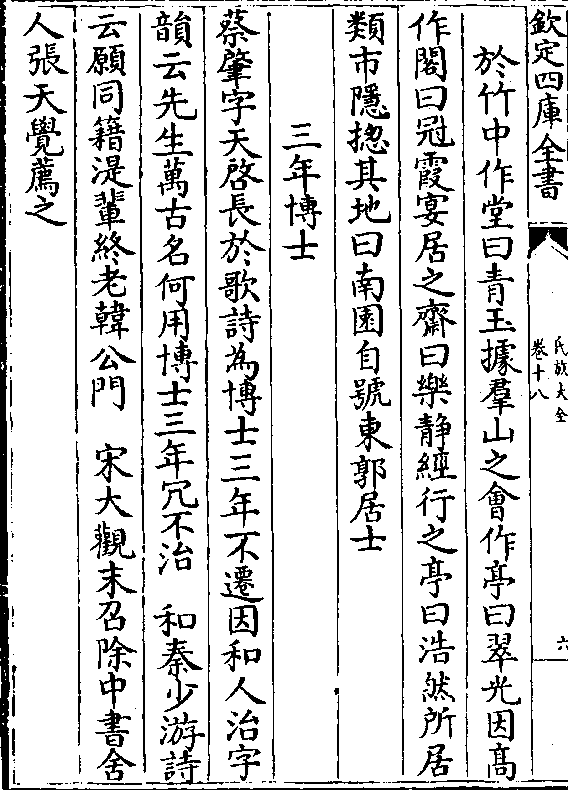 欽定四庫全書
氏族大全
卷十八
六
於竹中作堂曰青玉據羣山之會作亭曰翠光因髙
作閣曰冠霞宴居之齋曰樂静經行之亭曰浩然所居
類市隱揔其地曰南園自號東郭居士
三年博士
蔡肇字天啓長於歌詩為博士三年不遷因和人治字
韻云先生萬古名何用博士三年冗不治 和秦少游詩
云願同籍湜輩終老韓公門 宋大觀末召除中書舍
人張天覺薦之